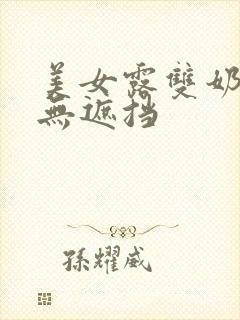 美女露雙奶
無遮挡
孫耀威